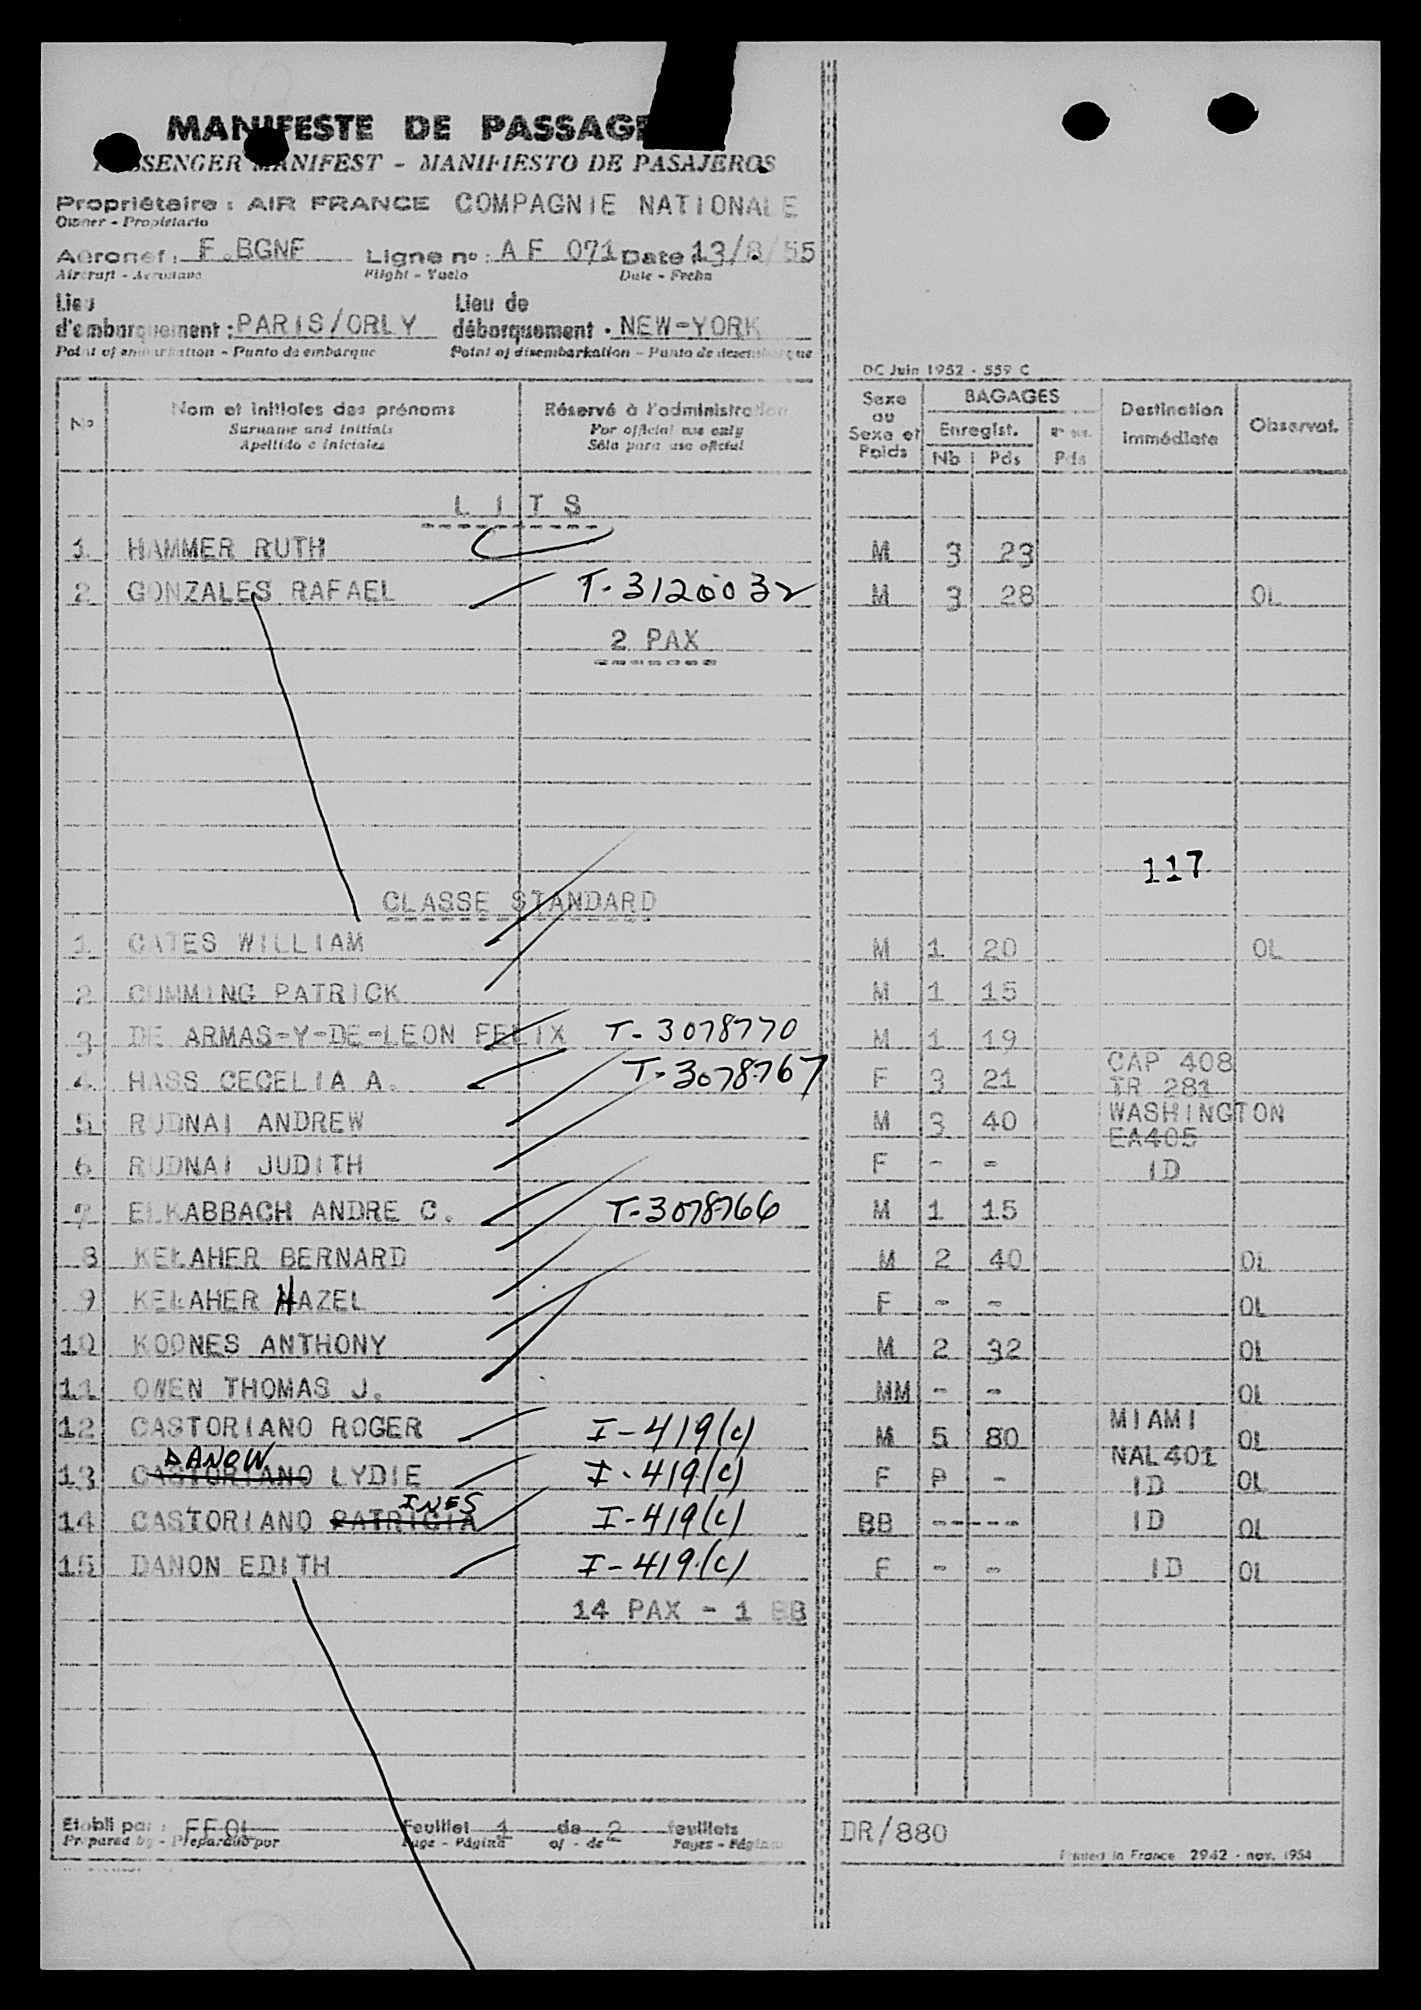 MANIFESTE DE PASSAGE
PASSENGER MANIFEST - MANIFIESTO DE PASAJEROS
Propriétaire : AIR FRANCE COMPAGNIE NATIONALE
Owner - Propietario
Aéronef : F.BGNF Ligne n° : AF 071 Date : 13/8/55
Aircraft - Aeronave Flight - Vuelo Date - Fecha
Lieu d'embarquement : PARIS/ORLY Lieu de débarquement : NEW-YORK
Point of embarkation - Punto de embarque Point of disembarkation - Punto de desembarque
DC Juin 1952 - 559 C
N° Nom et initiales des prénoms Réservé à l'administration Sexe ou Sexe et Poids BAGAGES Destination immédiate Observat.
Surname and initials For official use only Enregist.
Apellido e iniciales Sóla para uso oficial Nb Pds Pds
LITS
1 HAMMER RUTH M 3 23
2 GONZALES RAFAEL T-3120032 M 3 28 OL
2 PAX
117
CLASSE STANDARD
1 CATES WILLIAM M 1 20 OL
2 CUMMING PATRICK M 1 15
3 DE ARMAS-Y-DE-LEON FELIX T-3078770 M 1 19
4 HASS CECELIA A. T-3078767 F 3 21 CAP 408 TR 281
5 RUDNAI ANDREW M 3 40 WASHINGTON EA405
6 RUDNAI JUDITH F - - ID
7 ELKABBACH ANDRE C. T-3078766 M 1 15
8 KELAHER BERNARD M 2 40 OL
9 KELAHER HAZEL F - - OL
10 KOONES ANTHONY M 2 32 OL
11 OWEN THOMAS J. MM - - OL
12 CASTORIANO ROGER I-419(c) M 5 80 MIAMI OL
DANOW NAL401
13 CASTORIANO LYDIE I-419(c) F P - ID OL
INES
14 CASTORIANO PATRICIA I-419(c) BB ----- ID OL
15 DANON EDITH I-419(c) F - - ID OL
14 PAX - 1 BB
Etabli par : FFOL Feuillet 1 de 2 feuillets DR/880
Prepared by - Preparado por Page - Página of - de Pages - Páginas
Printed in France 2942 - nov. 1954